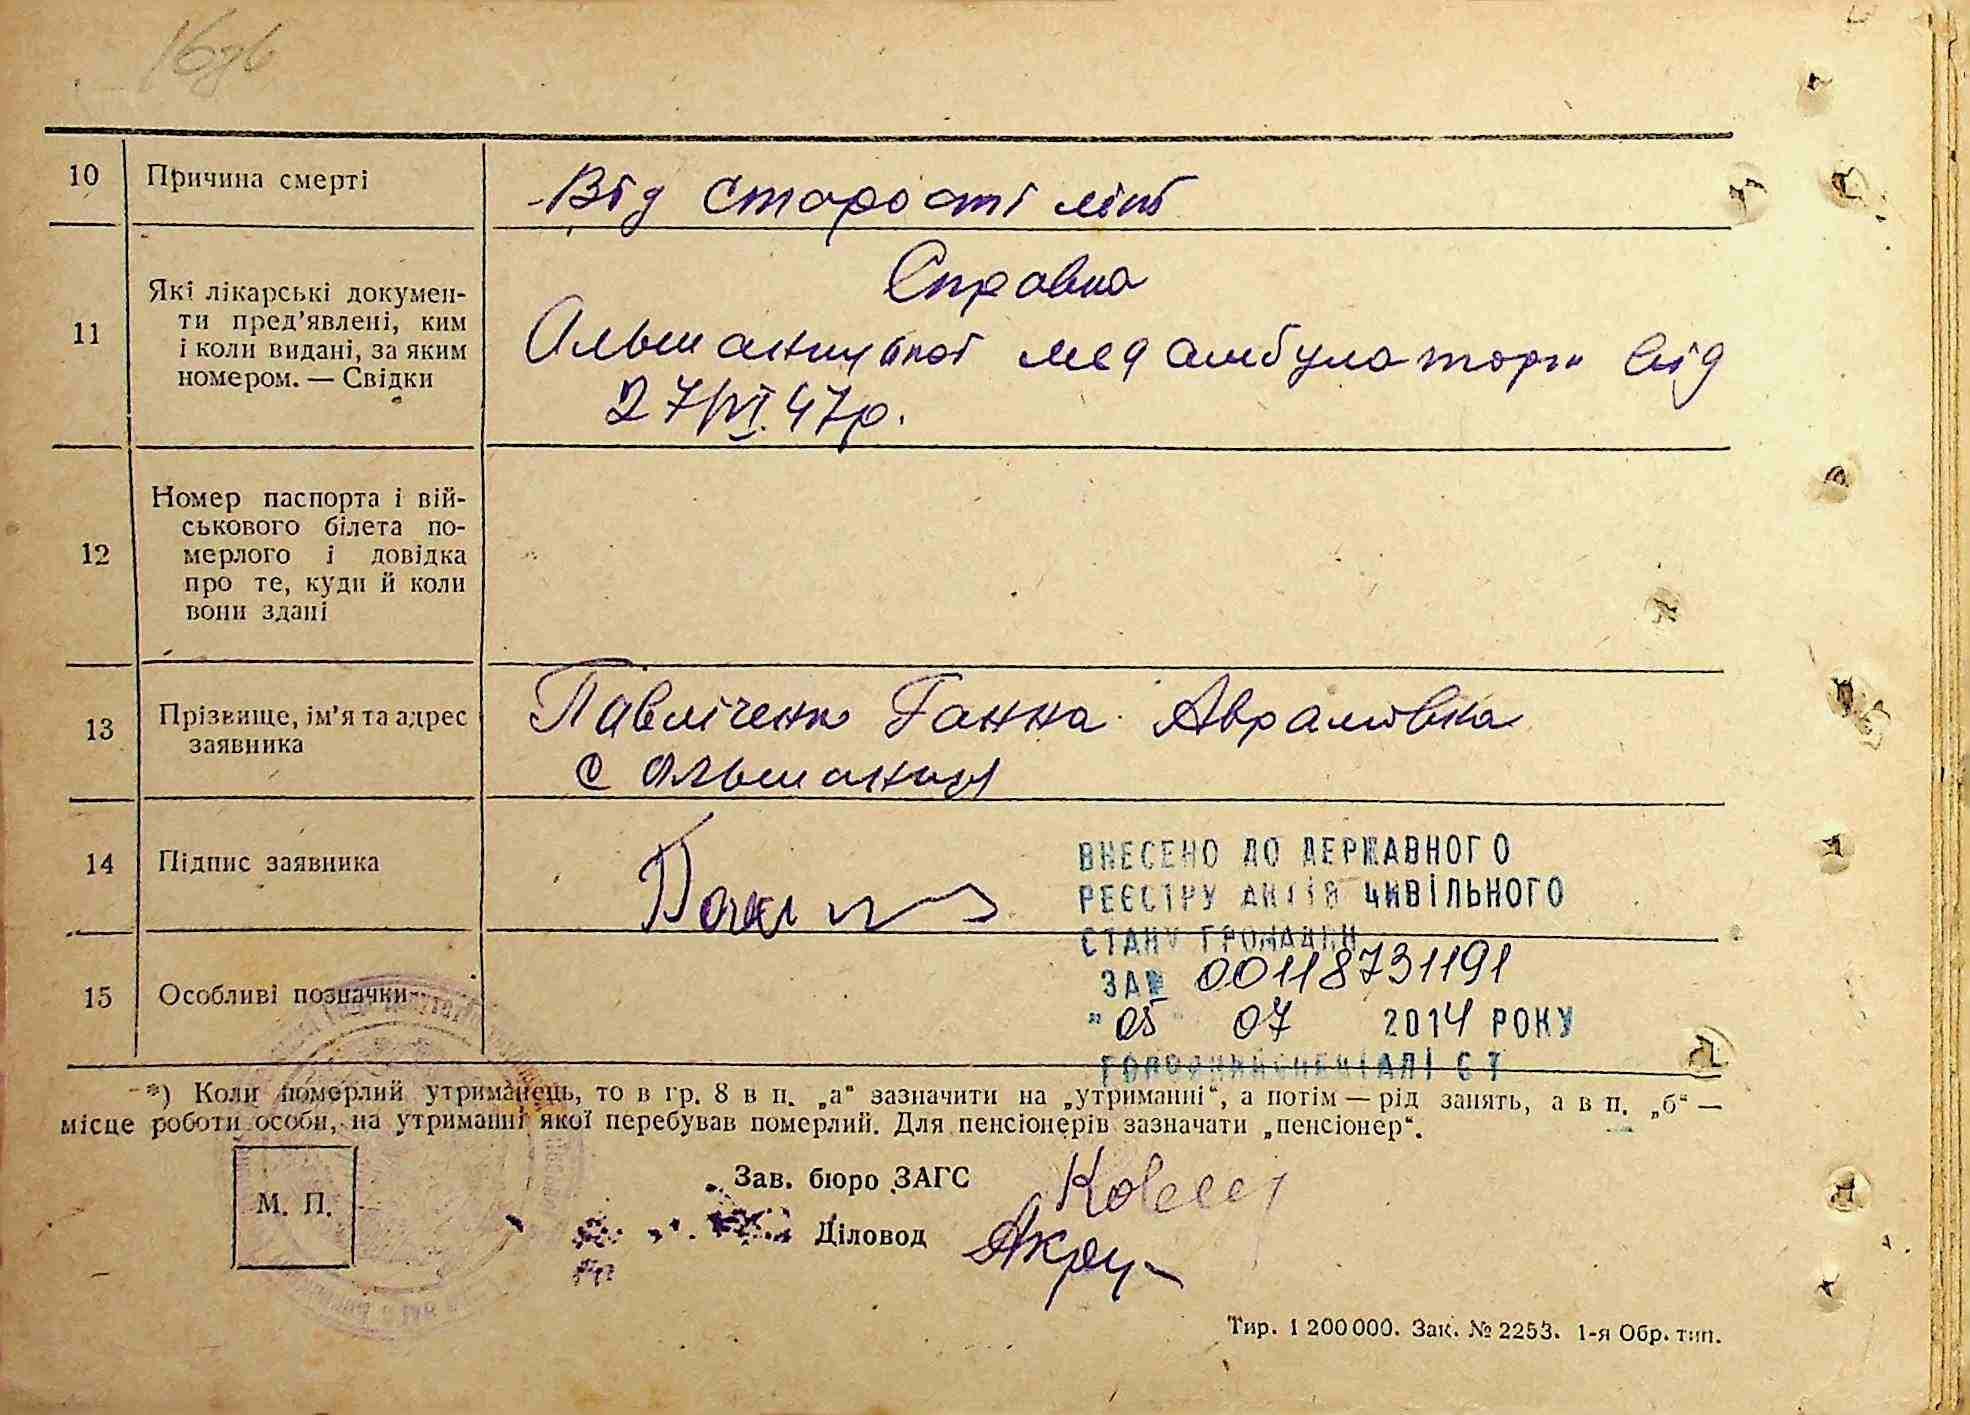 10 Причина смерті Від старості літ
11 Які лікарські докумен-
ти пред'явлені, ким
і коли видані, за яким
номером. — Свідки
Справка
Ольшаницької мед амбулаторії від
27/VI.47р.
12 Номер паспорта і вій-
ськового білета по-
мерлого і довідка
про те, куди й коли
вони здані
13 Прізвище, ім'я та адрес
заявника
Павліченко Ганна Аврамовна
с Ольшаниця
14 Підпис заявника
ВНЕСЕНО ДО ДЕРЖАВНОГО
РЕЄСТРУ АКТІВ ЦИВІЛЬНОГО
СТАНУ ГРОМАДЯН
ЗА № 00118731191
"05" 07 2014 РОКУ
ГОЛОВНИЙ СПЕЦІАЛІСТ
15 Особливі позначки
*) Коли померлий утриманець, то в гр. 8 в п. „а“ зазначити на „утриманні“, а потім — рід занять, а в п. „б“ —
місце роботи особи, на утриманні якої перебував померлий. Для пенсіонерів зазначати „пенсіонер“.
М. П.
Зав. бюро ЗАГС
Діловод
Тир. 1 200 000. Зак. № 2253. 1-я Обр. тип.